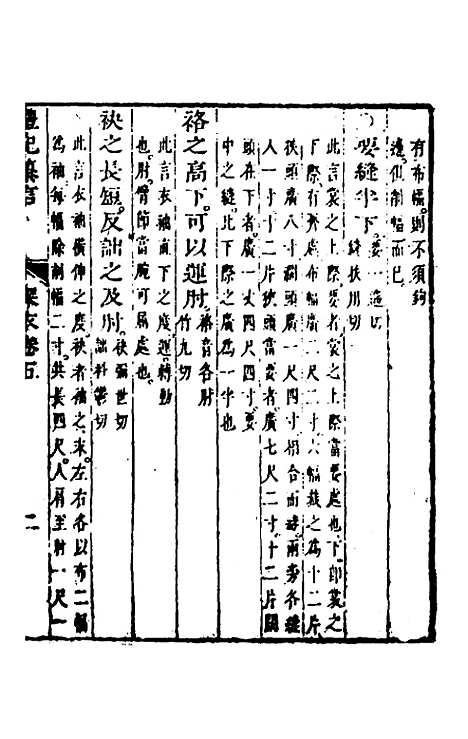 有布幅則不須鉤
邊但削幅而已
○要縫半下要一遥切縫扶用切
此言裳之上際要者裳之上際當要處也下卽裳之
下際行齊處布幅二尺二寸六幅裁之爲十二片
狹頭廣八寸濶頭廣一尺四寸相合而縫兩旁各縫
人一寸十二片狹頭當要者廣七尺二寸十二片闊
頭在下者廣一丈四尺四寸要
中之縫比下際之廣爲一半也
袼之高下可以運肘袼音各肘竹九切
此言衣袖直下之度運轉動
也肘臂節當腕可屈處也
袂之長短反詘之及肘袂彌世切詘
此言衣袖橫伸之度袂者袖之末左右各以布二幅
爲袖每幅除削幅二寸共長四尺人肩至肘一尺一
禮記纂言 深衣卷五 二